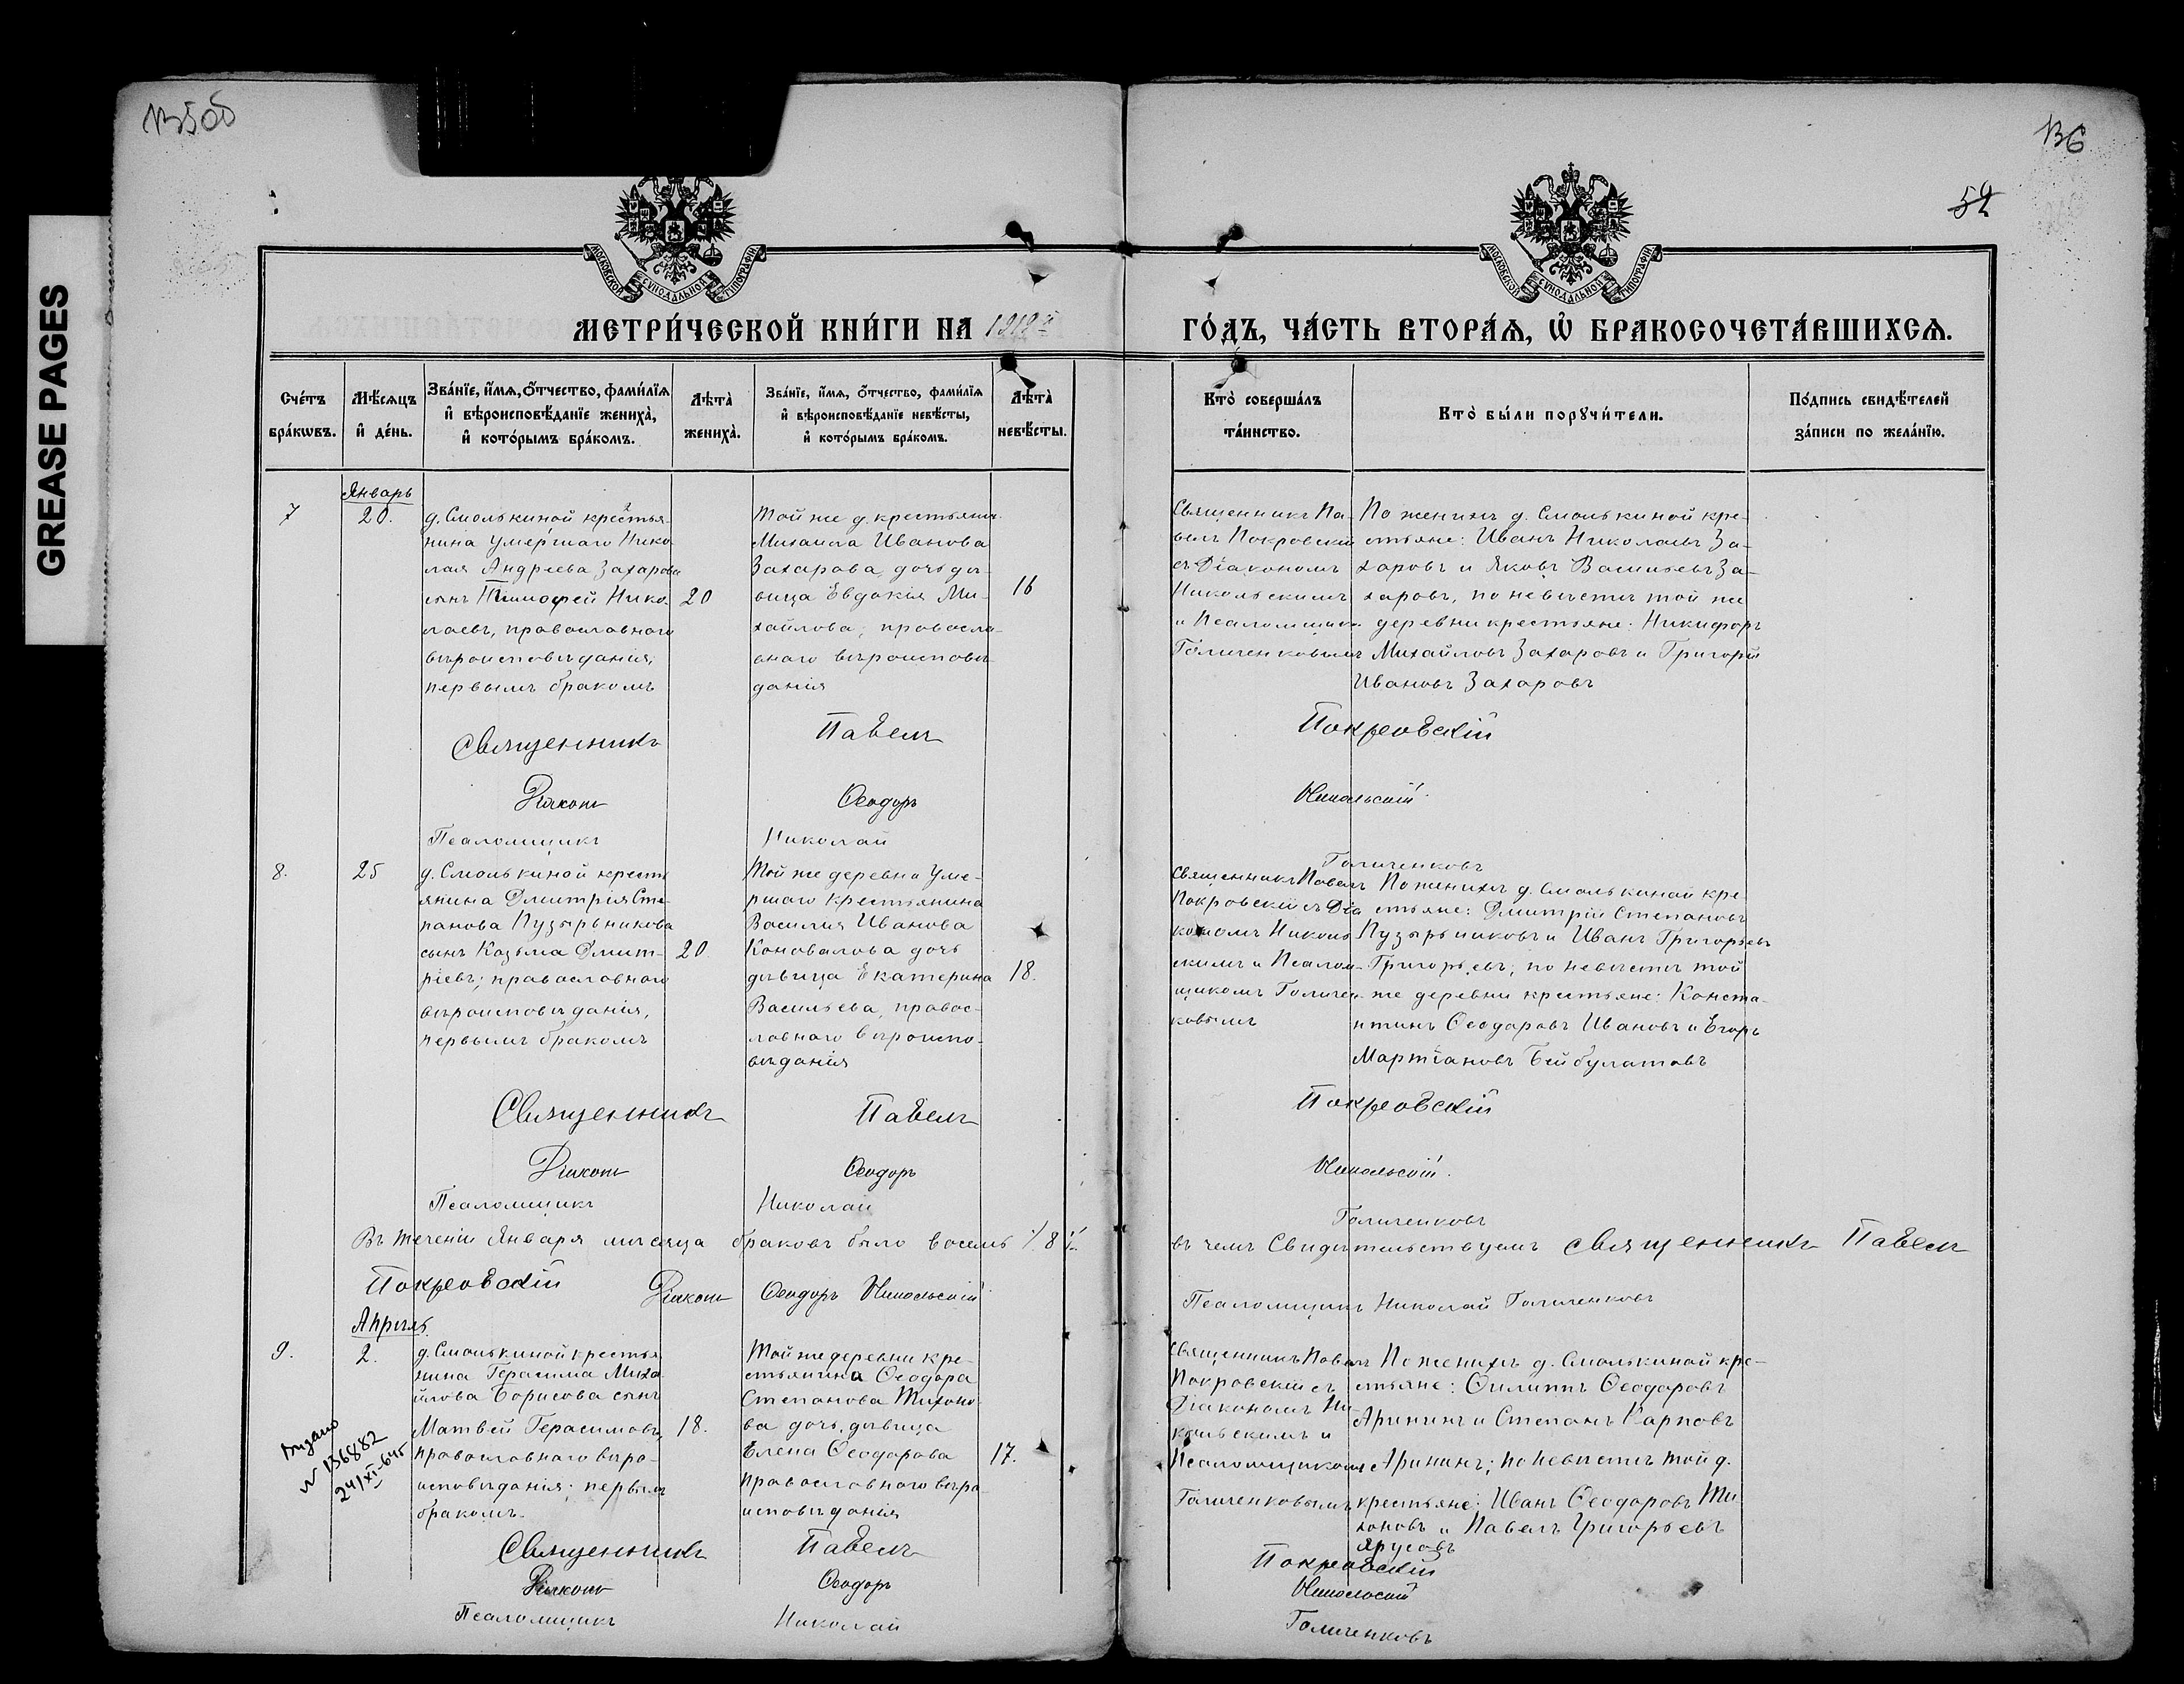 GREASE PAGES
135об
136
МОСКОВСКОЙ СѴНОДАЛЬНОЙ ТИПОГРАФІИ
МОСКОВСКОЙ СѴНОДАЛЬНОЙ ТИПОГРАФІИ
МЕТРИ́ЧЕСКОЙ КНИ́ГИ НА 1912й
ГО́ДЪ, ЧА́СТЬ ВТОРА́Ѧ, Ѽ БРАКОСОЧЕТА́ВШИХСѦ.
Сче́тъ бра́кѡвъ.
Мѣ́сѧцъ и҆ де́нь.
Зва́нїе, и҆́мѧ, ѻ҆́тчество, фами́лїѧ и҆ вѣроисповѣ́данїе жениха̀, и҆ кото́рымъ бра́комъ.
Лѣта̀ жениха̀.
Зва́нїе, и҆́мѧ, ѻ҆́тчество, фами́лїѧ и҆ вѣроисповѣ́данїе невѣ́сты, и҆ кото́рымъ бра́комъ.
Лѣта̀ невѣ́сты.
Кто̀ соверша́лъ та́инство.
Кто̀ бы́ли порꙋчи́тели.
По́дпись свидѣ́телей за́писи по жела́нїю.
Январь
7
20.
д. Смолькиной крестья-
нина умершаго Нико-
лая Андреева Захарова
сынъ Тимофей Нико-
лаевъ, православнаго
вѣроисповѣданія,
первымъ бракомъ
20
Той же д. крестьянина
Михаила Иванова
Захарова дочь дѣ-
вица Евдокія Ми-
хайлова, правосла-
внаго вѣроисповѣ-
данія
16
Священникъ Па-
велъ Покровскій
съ Діакономъ
Никольскимъ
и Псаломщик.
Голиченковымъ
По женихѣ д. Смолькиной кре-
стьяне: Иванъ Николаевъ За-
харовъ и Яковъ Васильевъ За-
харовъ, по невѣстѣ той же
деревни крестьяне: Никифоръ
Михайловъ Захаровъ и Григорій
Ивановъ Захаровъ
Священникъ Павелъ Покровскій
Діаконъ Ѳеодоръ Никольскій
Псаломщикъ Николай Голиченковъ
8.
25
д. Смолькиной кресть
янина Дмитрія Сте-
панова Пузырьникова
сынъ Козьма Дмит-
ріевъ; православнаго
вѣроисповѣданія,
первымъ бракомъ
20
Той же деревни уме-
ршаго крестьянина
Василия Иванова
Коновалова дочь
дѣвица Екатерина
Васильева, правос-
лавнаго вѣроиспо-
вѣданія
18.
Священникъ Павелъ
Покровскій съ Діа
кономъ Николь
скимъ и Псалом-
щикомъ Голичен-
ковымъ
По женихѣ д. Смолькиной кре-
стьяне: Дмитрій Степановъ
Пузырьниковъ и Иванъ Григорьевъ
Григорьевъ; по невѣстѣ той
же деревни крестьяне: Конста-
нтинъ Ѳеодоровъ Ивановъ и Егоръ
Мартіановъ Бейбулатовъ
Священникъ Павелъ Покровскій
Діаконъ Ѳеодоръ Никольскій
Псаломщикъ Николай Голиченковъ
Въ теченіи Января мѣсяца браковъ было восемь /8/ въ чемъ свидѣтельствуемъ Священникъ Павелъ
Покровскій Діаконъ Ѳеодоръ Никольскій Псаломщикъ Николай Голиченковъ
Апрѣль
9.
2.
д. Смолькиной крестья
нина Герасима Миха
йлова Борисова сынъ
Матвей Герасимовъ,
православнаго вѣро-
исповѣданія; первымъ
бракомъ.
18.
Той же деревни кре-
стьянина Ѳеодора
Степанова Тихоно-
ва дочь, дѣвица
Елена Ѳеодорова
православнаго вѣро-
исповѣданія
17.
Священникъ Павелъ
Покровскій съ
Діакономъ Ни-
кольскимъ и
Псаломщикомъ
Голиченковымъ
По женихѣ д. Смолькиной кре-
стьяне: Филиппъ Ѳеодоровъ
Аринин и Степанъ Карповъ
Арининъ; по невѣстѣ той д.
крестьяне: Иванъ Ѳеодоровъ Ти-
хоновъ и Павелъ Григорьевъ
Ярусовъ
Выдано
№ 136882
24/XI-64г
Священникъ Павелъ Покровскій
Діаконъ Ѳеодоръ Никольскій
Псаломщикъ Николай Голиченковъ